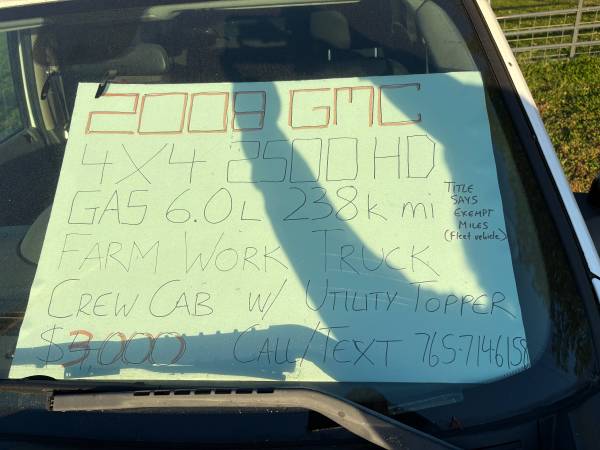 2009 GMC
4X4 2500 HD
GAS 6.0L 238k mi
TITLE
SAYS
EXEMPT
MILES
(Fleet vehicle)
FARM WORK TRUCK
CREW CAB W/ UTILITY TOPPER
$3,000 CALL/TEXT 765-7146158